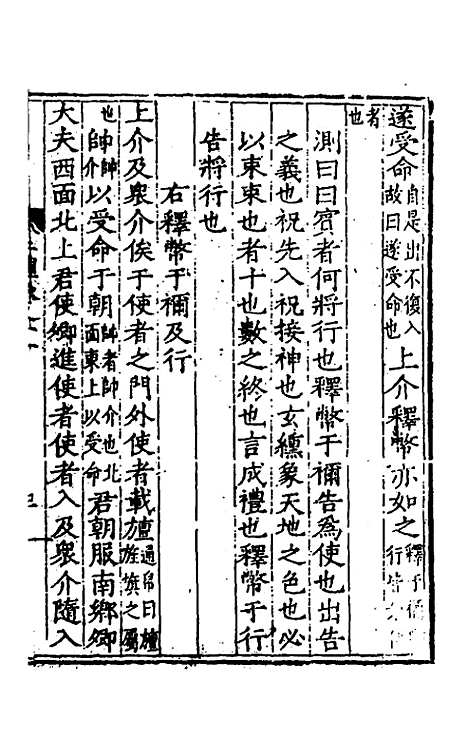 遂受命自是出不復入故曰遂受命也上介釋幣亦如之釋于行皆
者也
測曰曰賓者何將行也釋幣于禰告為使也出告
之義也祝先入祝接神也玄纁象天地之色也必
以束束也者十也數之終也言成禮也釋幣于行
告將行也
右釋幣于禰及行
上介及眾介俟于使者之門外使者載旜通帛曰旜旌旗之屬
也帥帥介以受命于朝帥者帥介也北面東上以受命君朝服南鄉卿
大夫西面北上君使卿進使者使者入及眾介隨入